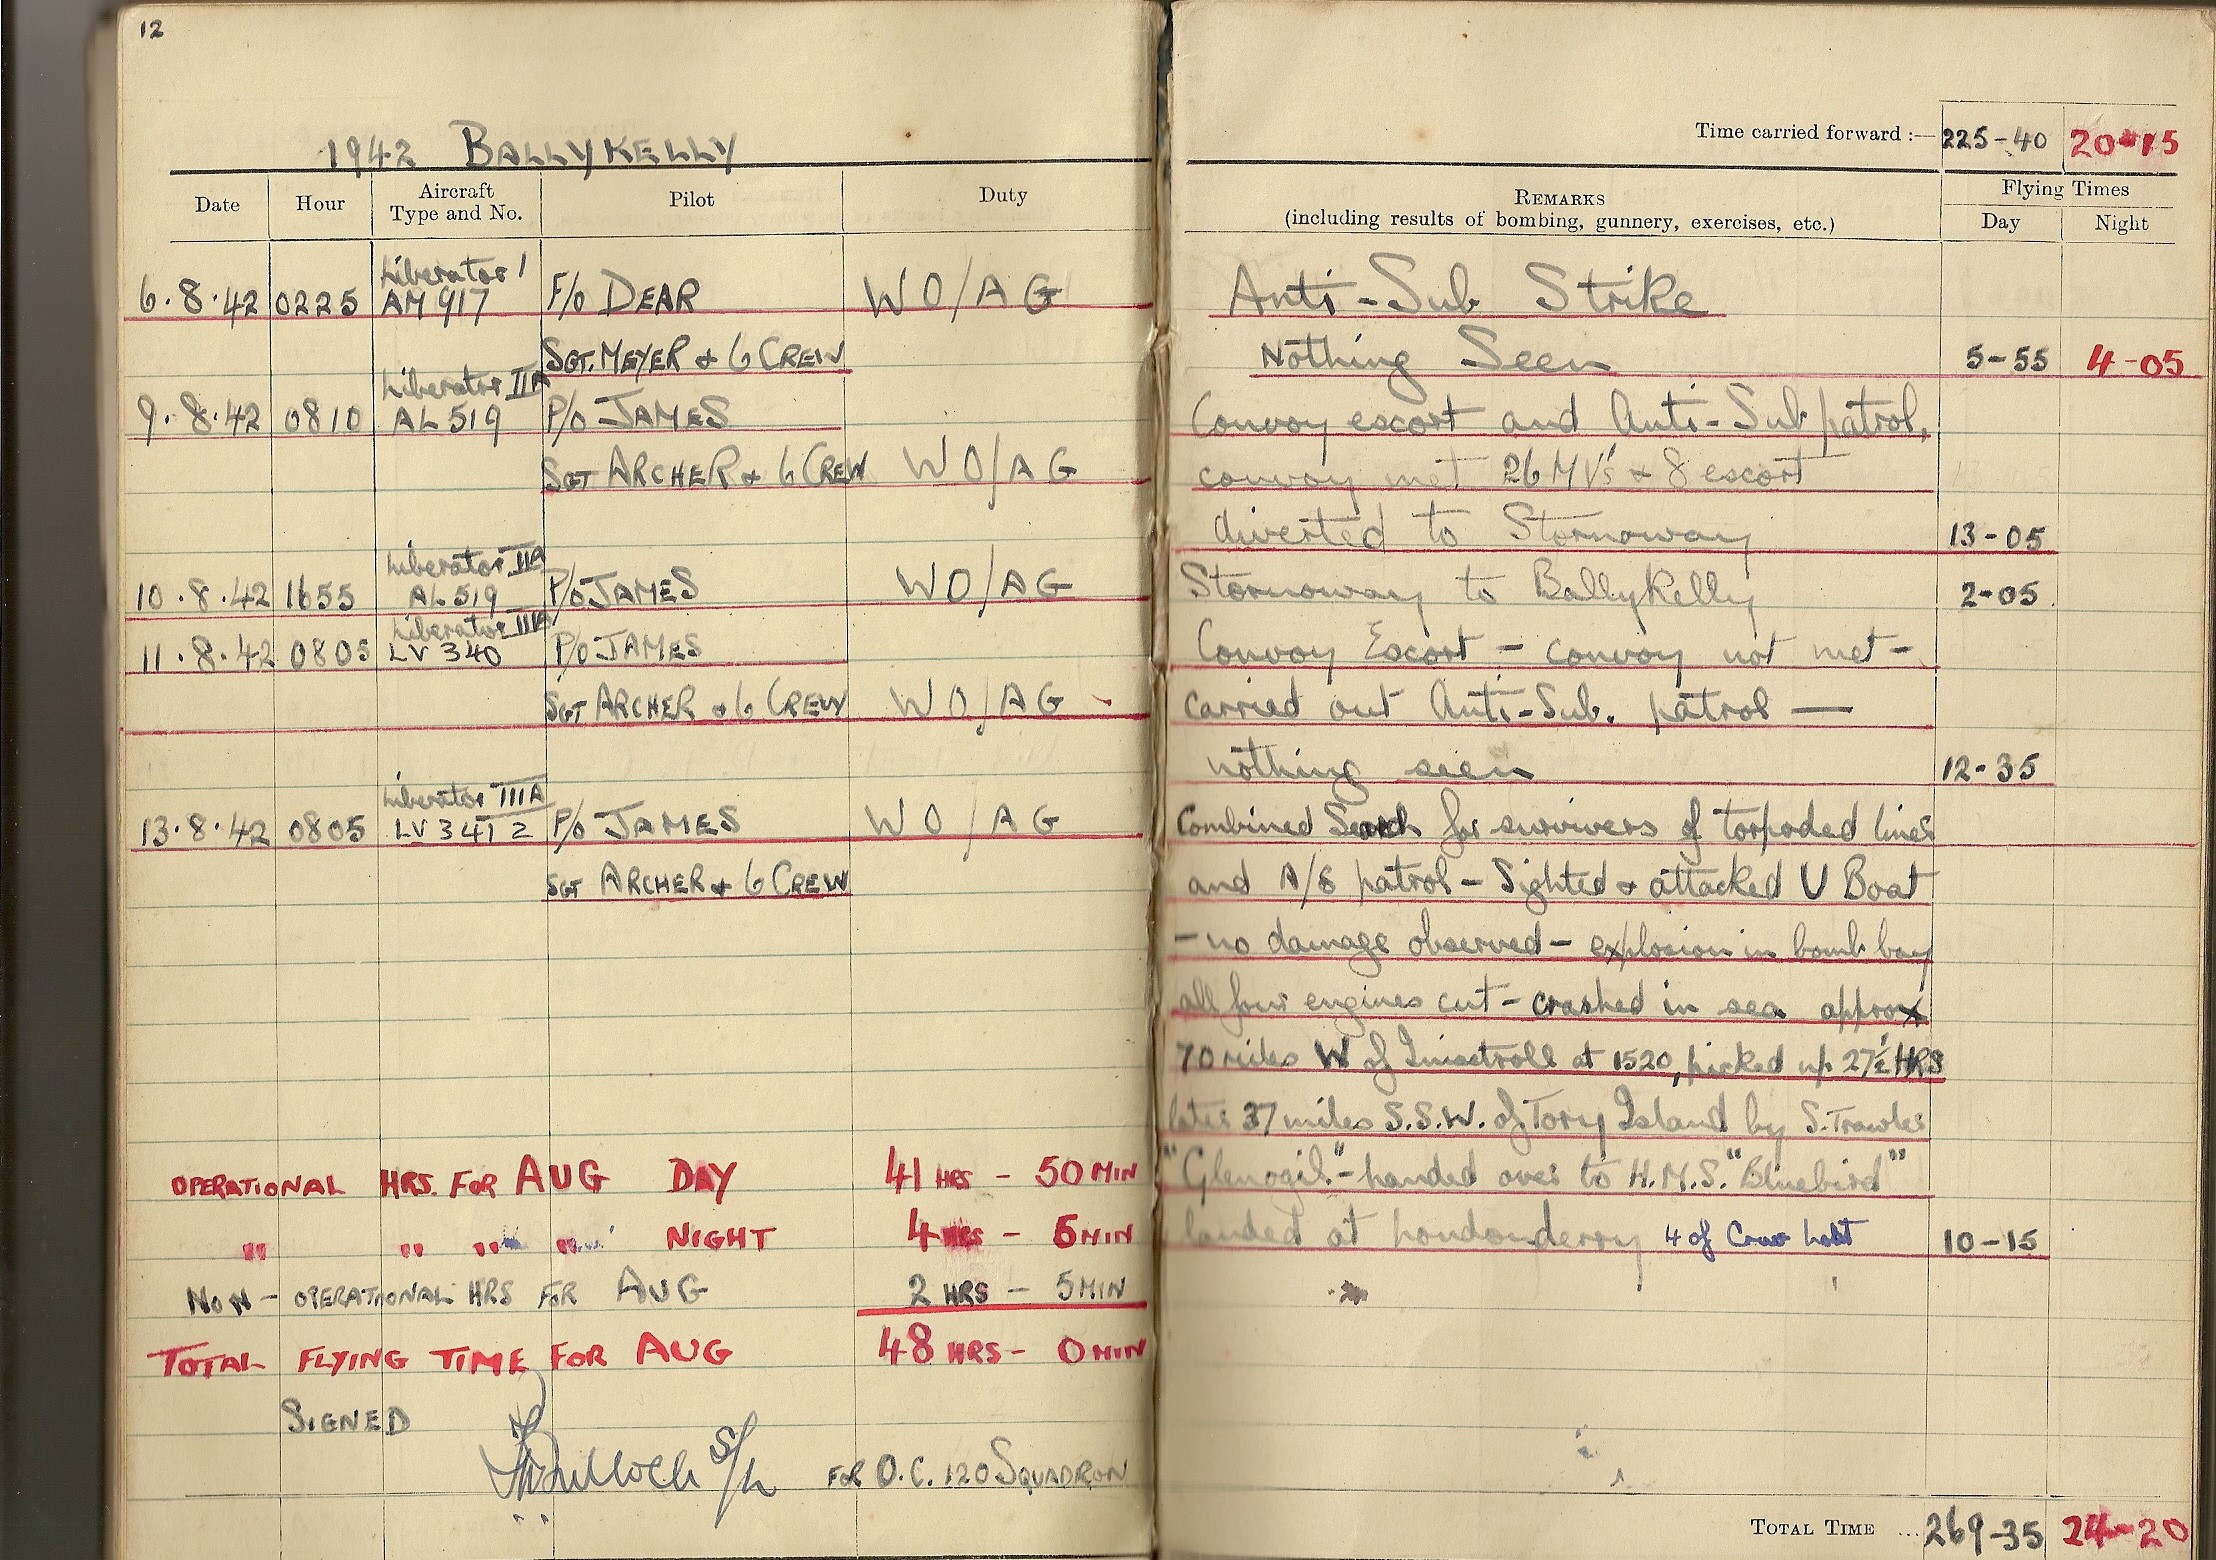 12
1942 BALLYKELLY
Date Hour Aircraft Type and No. Pilot Duty
6.8.42 0225 Liberator I AM 917 F/O DEAR WO/AG
SGT. MEYER & 6 CREW
9.8.42 0810 Liberator IIA AL 519 P/O JAMES
SGT ARCHER & 6 CREW WO/AG
10.8.42 1655 Liberator IIA AL 519 P/O JAMES WO/AG
11.8.42 0805 Liberator IIIA LV 340 P/O JAMES
SGT ARCHER & 6 CREW WO/AG
13.8.42 0805 Liberator IIIA LV 341 2 P/O JAMES WO/AG
SGT ARCHER & 6 CREW
OPERATIONAL HRS. FOR AUG DAY 41 HRS - 50 MIN
" " " " NIGHT 4 HRS - 5 MIN
NON-OPERATIONAL HRS FOR AUG 2 HRS - 5 MIN
TOTAL FLYING TIME FOR AUG 48 HRS - 0 MIN
SIGNED
Bulloch S/L FOR O.C. 120 SQUADRON
Time carried forward :— 225-40 20-15
REMARKS Flying Times
(including results of bombing, gunnery, exercises, etc.) Day Night
Anti-Sub Strike
Nothing Seen 5-55 4-05
Convoy escort and Anti-Sub patrol,
convoy met 26 MV's & 8 escort
diverted to Stornoway 13-05
Stornoway to BallyKelly 2-05
Convoy Escort - convoy not met -
carried out Anti-Sub. patrol —
nothing seen 12-35
Combined Search for survivers of torpoded liner
and A/S patrol - Sighted & attacked U Boat
- no damage observed - explosion in bomb bay
all four engines cut - crashed in sea approx
70 miles W of at 1520, picked up 27½ HRS
later 37 miles S.S.W. of Tory Island by S. Trawler
"Glenogil" - handed over to H.M.S. "Bluebird"
landed at Londonderry 4 of Crew lost 10-15
TOTAL TIME ... 269-35 24-20